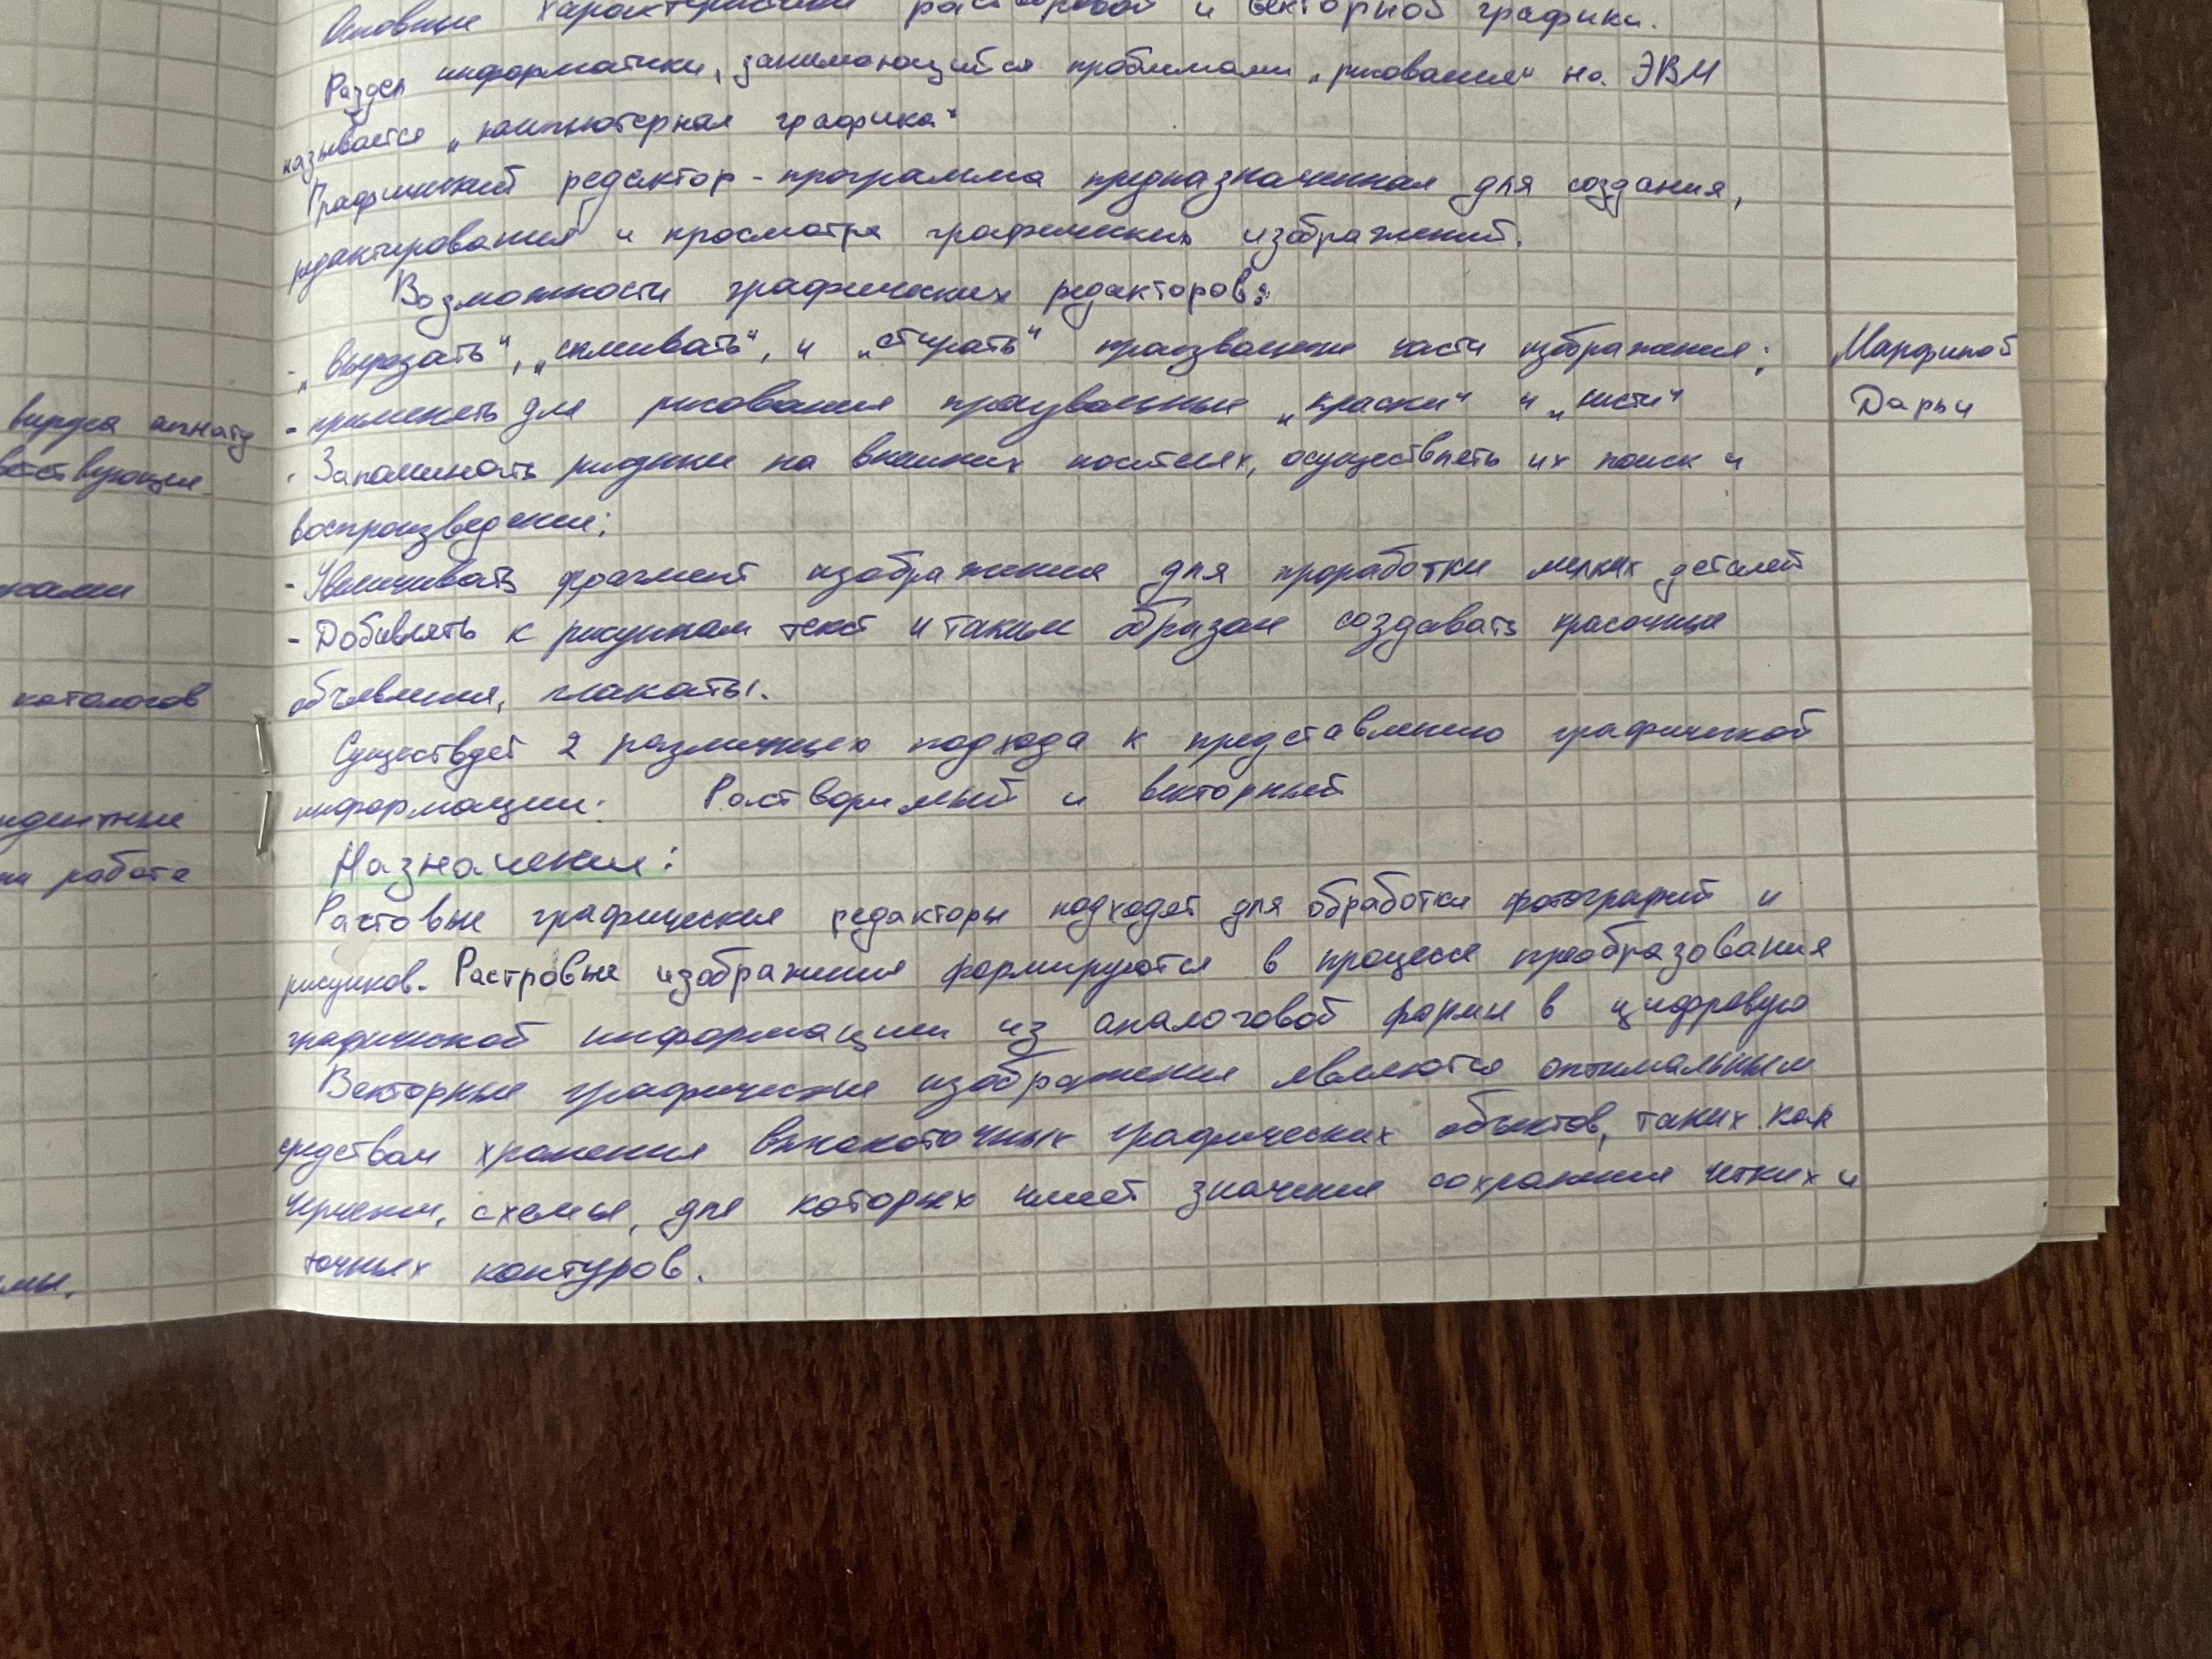 вируса
каталогов
работе
Основные характеристики растровой и векторной графики.
Раздел информатики, занимающийся проблемами „рисования" на ЭВМ
называется „компьютерная графика"
Графический редактор - программа предназначенная для создания,
редактирования и просмотра графических изображений.
Возможности графических редакторов:
- „вырезать", „склеивать", и „стирать" произвольные части изображения;
- применять для рисования произвольные „краски" и „кисти"
- Запоминать рисунки на внешних носителях, осуществлять их поиск и
воспроизведение;
- Увеличивать фрагмент изображения для проработки мелких деталей
- Добавлять к рисункам текст и таким образом создавать красочные
объявления, плакаты.
Существует 2 различных подхода к представлению графической
информации: Растворимый и векторный
Назначение:
Растовые графические редакторы подходят для обработки фотографий и
рисунков. Растровые изображения формируются в процессе преобразования
графической информации из аналоговой формы в цифровую
Векторные графические изображения являются оптимальным
средством хранения высокоточных графических объектов, таких как
чертежи, схемы, для которых имеет значение сохранение четких и
точных контуров.
Дарьи